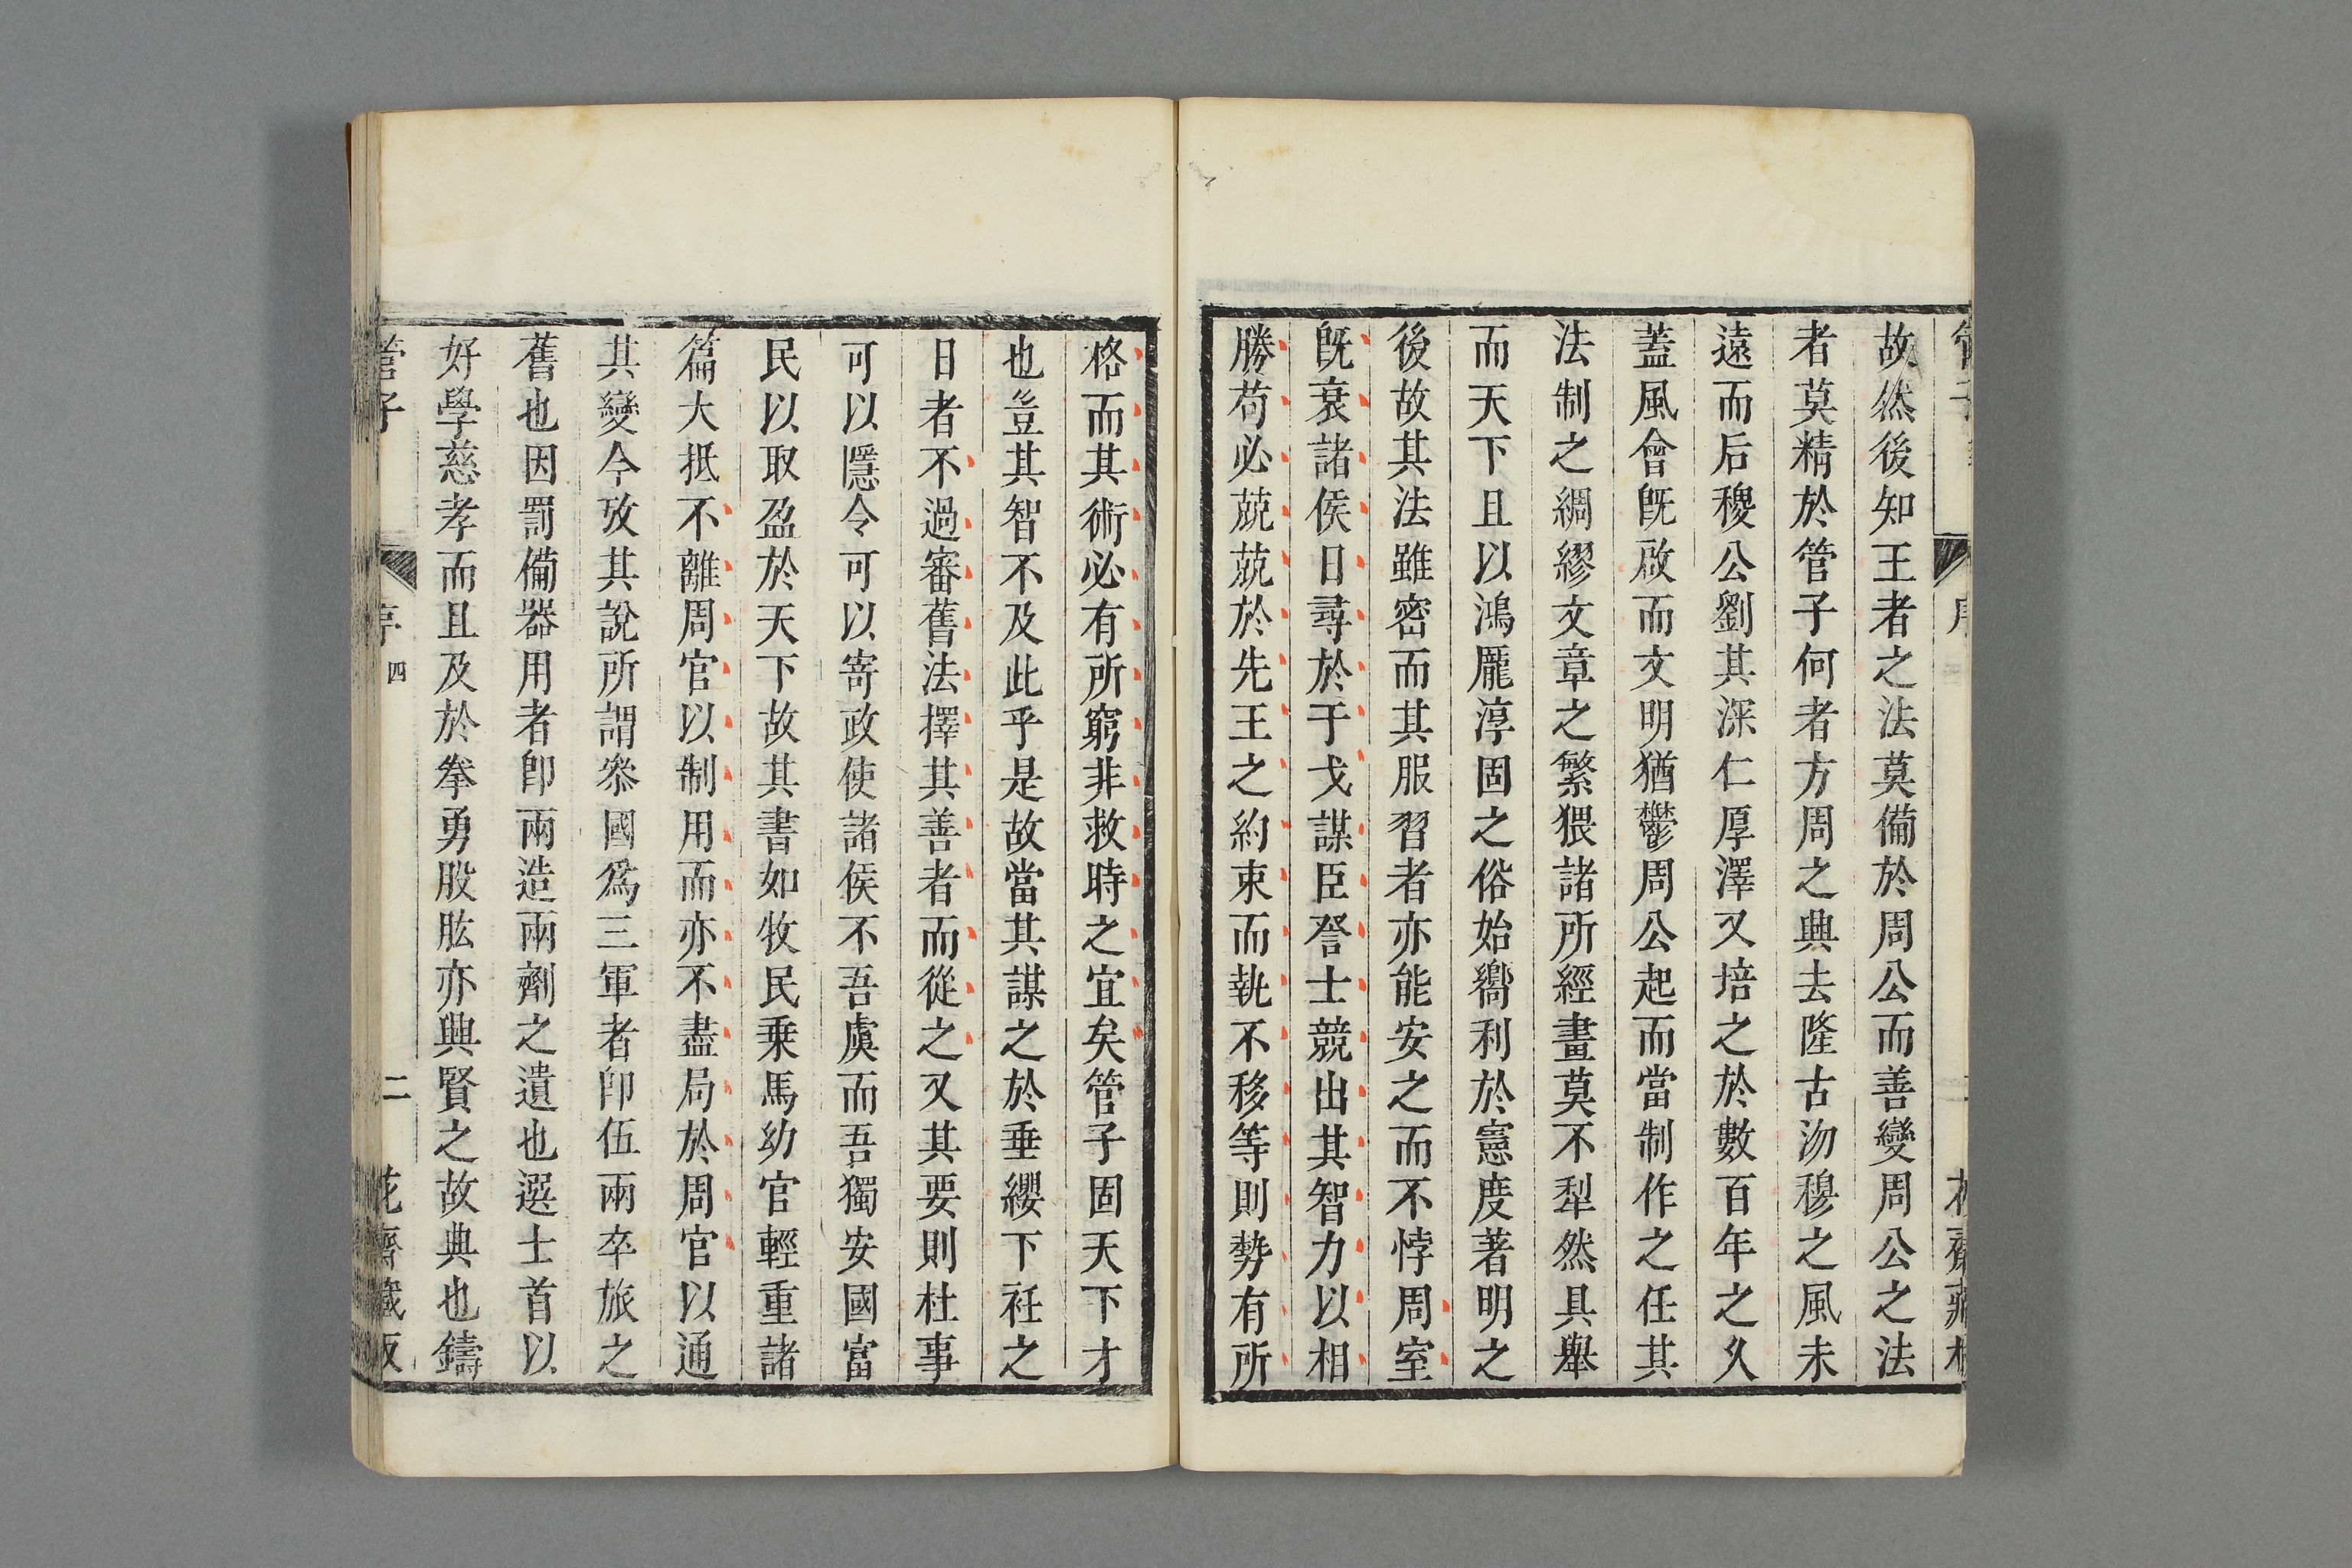 故然後知王者之法莫備於周公而善變周公之法
者莫精於管子何者方周之興去隆古沕穆之風未
遠而后稷公劉其深仁厚澤又培之於數百年之久
蓋風會旣啟而文明猶鬱周公起而當制作之任其
法制之綢繆文章之繁猥諸所經畫莫不犁然具舉
而天下且以鴻龐淳固之俗始嚮利於憲度著明之
後故其法雖密而其服習者亦能安之而不悖周室
旣衰諸侯日尋於于戈謀臣䇿士競出其智力以相
勝苟必兢兢於先王之約束而執不移等則勢有所
格而其術必有所窮非救時之宜矣管子固天下才
也豈其智不及此乎是故當其謀之於垂纓下衽之
日者不過審舊法擇其善者而從之又其要則杜事
可以隱令可以寄政使諸侯不吾虞而吾獨安國富
民以取盈於天下故其書如牧民乗馬幼官輕重諸
篇大抵不離周官以制用而亦不盡局於周官以通
其變今攷其說所謂叅國爲三軍者卽伍兩卒旅之
舊也因罰備器用者卽兩造兩劑之遺也選士首以
好學慈孝而且及於拳勇股肱亦興賢之故典也鑄
管子
序
四
二
花齋藏版